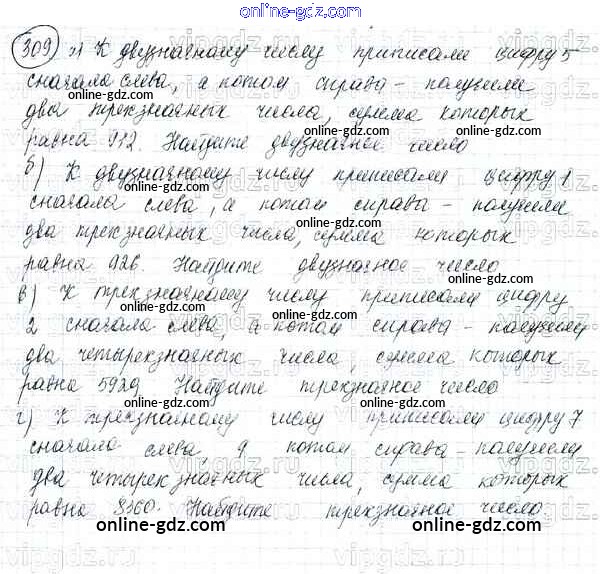 online-gdz.com
309 а) К двузначному числу приписали цифру 5
сначала слева, а потом справа – получили
два трехзначных числа, сумма которых
равна 912. Найдите двузначное число
б) К двузначному числу приписали цифру 1
сначала слева, а потом справа – получили
два трехзначных числа, сумма которых
равна 926. Найдите двузначное число
в) К трехзначному числу приписали цифру
2 сначала слева, а потом справа – получили
два четырехзначных числа, сумма которых
равна 5929 Найдите трехзначное число
г) К трехзначному числу приписали цифру 7
сначала слева, а потом справа – получили
два четырехзначных числа, сумма которых
равна 8360. Найдите трехзначное число
online-gdz.com